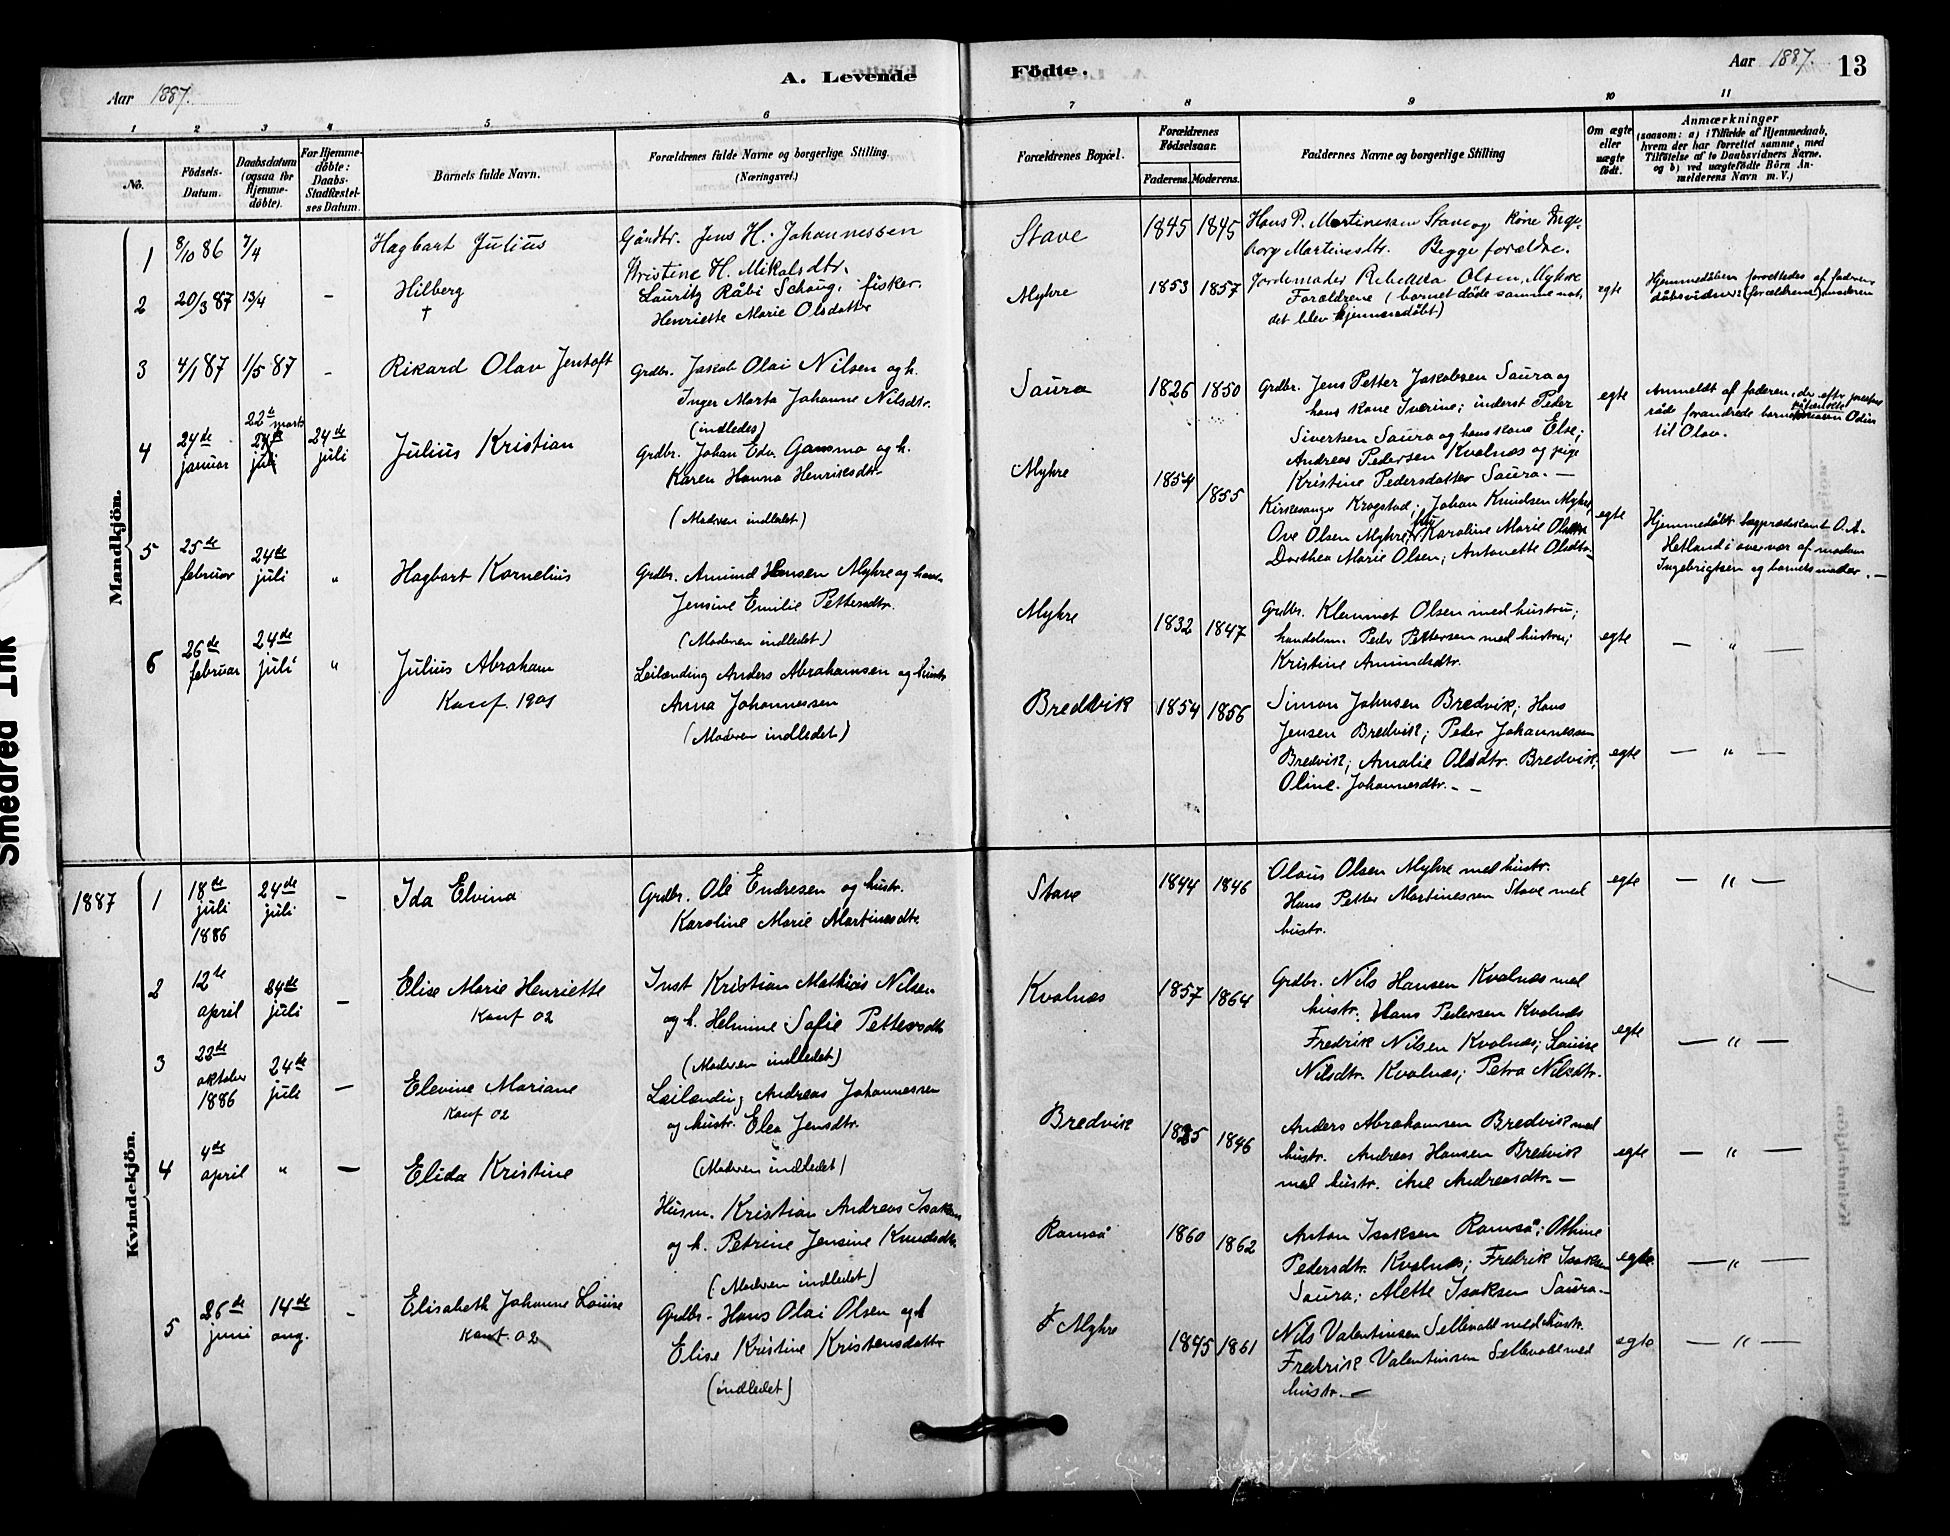 Aar 1887.
A. Levende
Födte.
Aar 1887.
13
1
2
3
4
5
6
7
8
9
10
11
No.
Födsels-
Datum.
Daabsdatum
(ogsaa for
Hjemme-
döbte).
For Hjemme-
döbte:
Daabs-
Stadfæstel-
ses Datum.
Barnets fulde Navn.
Forældrenes fulde Navne og borgerlige Stilling.
(Næringsvei.)
Forældrenes Bopæl.
Forældrenes
Födselsaar.
Faderens.
Moderens.
Faddernes Navne og borgerlige Stilling
Om ægte
eller
uægte
födt.
Anmærkninger
(saasom: a) i Tilfælde af Hjemmedaab,
hvem der har forrettet samme, med
Tilföielse af to Daabsvidners Navne,
og b) ved uægtefödte Börn An-
melderens Navn m. V.)
Mandkjön.
1
8/10 86
7/4
Hagbart Julius
Gårdbr. Jens H. Johannessen
Kristine H. Mikalsdtr.
Stave
1845
1845
Hans P. Martinessen Stave og kone Inge-
borg Martinesdtr. Begge forældre.
2
20/3 87
13/4
-
Hilberg
†
Lauritz Råbi Schaug, fisker
Henriette Marie Olsdatter
Myhre
1853
1857
Jordemoder Rebekka Olsen, Myhre
Forældrene (barnet döde samme nat,
det blev hjemmedöbt)
egte
Hjemmedåben forrettedes af faderen
dåbsvidner: (forældrene) moderen
3
4/1 87
1/5 87
-
Rikard Olav Jentoft
Grdbr. Jakob Olai Nilsen og h.
Inger Marta Johanne Nilsdtr.
(indledes)
Saura
1826
1850
Grdbr. Jens Petter Jakobsen Saura og
hans kone Iverine; inderst Peder
Sivertsen Saura og hans kone Else;
Andreas Pedersen Kvalnes og pige
Kristine Pedersdatter Saura. —
egte
Anmeldt af faderen, der efter
råd forandrede Odin
til Olav.
4
24de
januar
22de marts
24de
juli
24de
juli
Julius Kristian
Grdbr. Johan Edv. Gamma og h.
Karen Hanna Henriksdtr.
(Moderen indledet)
Myhre
1854
1855
Kirkesanger Krogstad; Johan Knudsen Myhre,
Ove Olsen Myhre, Karoline Marie Olsen
Dorthea Marie Olsen; Antonette Olsdtr.
egte
Hjemmedöbt lægprædikant O. A.
Hetland i overvær af madam
Ingebrigtsen og barnets moder. —
5
25de
februar
24de
juli
"
Hagbart Kornelius
Grdbr. Amund Hansen Myhre og
Jensine Emilie Pettersdtr.
(Moderen indledet)
Myhre
1832
1847
Grdbr. Klemmet Olsen med hustru;
handelsm. Peder Pettersen med hustru;
Kristine Amundsdtr.
egte
— " —
6
26de
februar
24de
juli
"
Julius Abraham
Konf. 1901
Leilænding Anders Abrahamsen og hustr
Anna Johannessen
(Moderen indledet)
Bredvik
1854
1856
Simon Johnsen Bredvik; Hans
Jensen Bredvik; Peder Johannessen
Bredvik; Amalie Olsdtr. Bredvik;
Oline Johannesdtr. - -
egte
— " —
Kvindekjön.
1887
1
18de
juli
1886
24de
juli
-
Ida Elvina
Grdbr. Ole Endresen og hustr.
Karoline Marie Martinesdtr
Stave
1844
1846
Olaus Olsen Myhre med hustr.
Hans Petter Martinessen Stave med
hustr.
egte
— " —
2
12te
april
24de
juli
—
Elise Marie Henriette
Konf 02
Inst Kristian Mathias Nilsen
og h. Helmine Sofie Pettersdtr
(Moderen indledet)
Kvalnes
1857
1864
Grdbr. Nils Hansen Kvalnes med
hustr. Hans Pedersen Kvalnes
Fredrik Nilsen Kvalnes; Louise
Nilsdtr. Kvalnes; Petra Nilsdtr.
egte
— " —
3
22de
oktober
1886
24de
juli
—
Elevine Mariane
Konf 02
Leilænding Andreas Johannessen
og hustr. Elea Jensdtr.
(Moderen indledet)
Bredvik
1835
1846
Anders Abrahamsen Bredvik med
hustr. Andreas Hansen Bredvik
med hustr. Ane Andreasdtr. —
egte
— " —
4
4de
april
"
—
Elida Kristine
Husm. Kristian Andreas Isaksen
og h. Petrine Jensine Knudsdtr.
(Moderen indledet)
Ramså
1860
1862
Anton Isaksen Ramså; Othine
Pedersdtr. Kvalnes; Fredrik Isaksen
Saura; Alette Isaksen Saura. —
egte
— " —
5
26de
juni
14de
aug.
-
Elisabeth Johanne Louise
Konf. 02
Grdbr. Hans Olai Olsen og h
Elise Kristine Kristensdatter
(indledet)
Myhre
1845
1861
Nils Valentinsen Sellevold med hustr.
Fredrik Valentinsen Sellevold med
hustr. —
egte
— " —